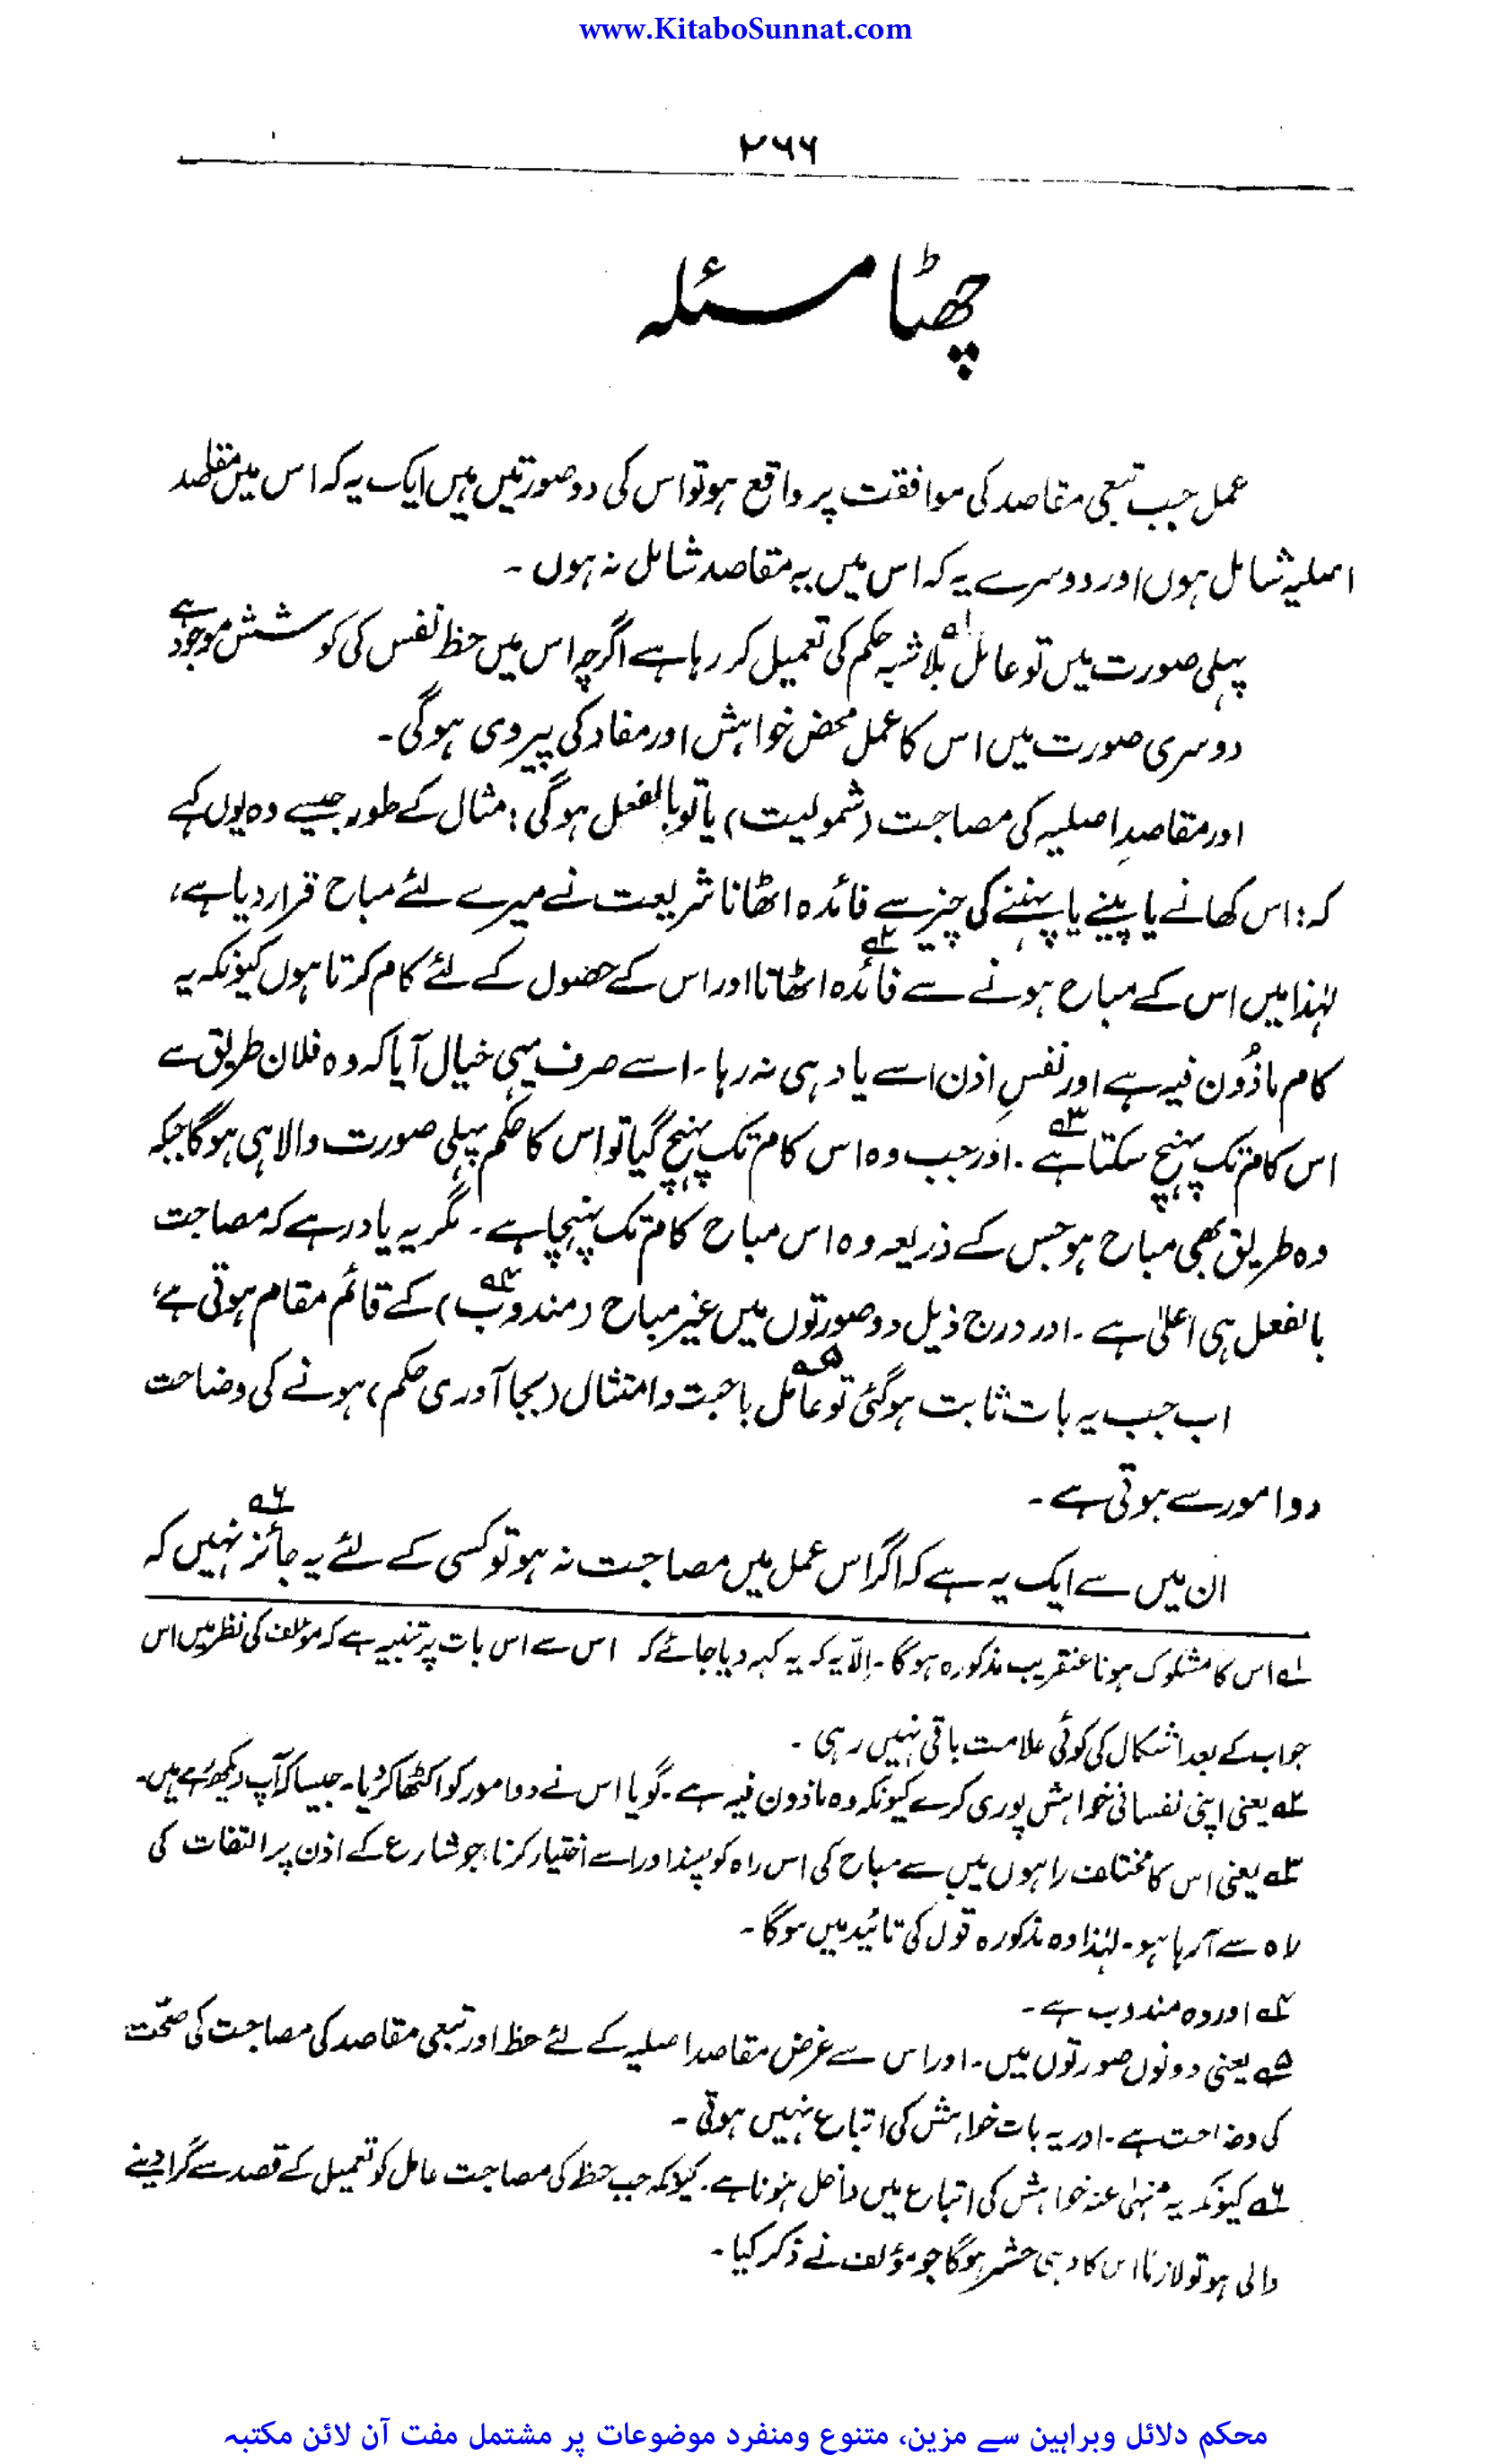 www.KitaboSunnat.com
۲۶۶
چھٹا مسئلہ
عمل جب تبعی مقاصد کی موافقت پر واقع ہو تو اس کی دو صورتیں ہیں ایک یہ کہ اس میں مقاصد
اصلیہ شامل ہوں اور دوسرے یہ کہ اس میں یہ مقاصد شامل نہ ہوں ۔
پہلی صورت میں تو عامل بلاشبہ ۱؎ حکم کی تعمیل کر رہا ہے اگرچہ اس میں حظ نفس کی کوشش موجود ہے
دوسری صورت میں اس کا عمل محض خواہش اور مفاد کی پیروی ہوگی۔
اور مقاصدِ اصلیہ کی مصاحبت (شمولیت) یا تو بالفعل ہوگی ؛ مثال کے طور جیسے وہ یوں کہے
کہ : اس کھانے یا پینے یا پہننے کی چیز سے فائدہ اٹھانا شریعت نے میرے لئے مباح قرار دیا ہے،
لہٰذا میں اس کے مباح ہونے سے فائدہ ۲؎ اٹھاتا اور اس کے حصول کے لئے کام کرتا ہوں کیونکہ یہ
کام ماذُون فیہ ہے اور نفسِ اذن اسے یاد ہی نہ رہا ۔ اسے صرف یہی خیال آیا کہ وہ فلان طریق سے
اس کام تک پہنچ سکتا ہے ۳؎ ۔ اور جب وہ اس کام تک پہنچ گیا تو اس کا حکم پہلی صورت والا ہی ہوگا جبکہ
وہ طریق بھی مباح ہو جس کے ذریعہ وہ اس مباح کام تک پہنچا ہے ۔ مگر یہ یاد رہے کہ مصاحبت
بالفعل ہی اعلیٰ ہے ۔ اور درج ذیل دو صورتوں میں غیر مباح (مندوب ۴؎) کے قائم مقام ہوتی ہے،
اب جب یہ بات ثابت ہوگئی تو عامل ۵؎ باحبت وامتثال (بجا آوری حکم) ہونے کی وضاحت
دو امور سے ہوتی ہے ۔
ان میں سے ایک یہ ہے کہ اگر اس عمل میں مصاحبت نہ ہو تو کسی کے لئے یہ جائز ۶؎ نہیں کہ
۱؎ اس کا مشکوک ہونا عنقریب مذکورہ ہوگا ۔ اِلّا یہ کہ یہ کہہ دیا جائے کہ اس سے اس بات پر تنبیہ ہے کہ مؤلف کی نظر میں اس
جواب کے بعد اشکال کی کوئی علامت باقی نہیں رہی ۔
۲؎ یعنی اپنی نفسانی خواہش پوری کرے کیونکہ وہ ماذون فیہ ہے ۔ گویا اس نے دو امور کو اکٹھا کر دیا۔ جیسا کہ آپ دیکھ رہے ہیں۔
۳؎ یعنی اس کا مختلف راہوں میں سے مباح کی اس راہ کو پسند اور اسے اختیار کرنا، جو شارع کے اذن پر التفات کی
راہ سے آرہا ہو۔ لہٰذا وہ مذکورہ قول کی تائید میں ہوگا ۔
۴؎ اور وہ مندوب ہے ۔
۵؎ یعنی دونوں صورتوں میں۔ اور اس سے غرض مقاصد اصلیہ کے لئے حظ اور تبعی مقاصد کی مصاحبت کی صحّت
کی وضاحت ہے ۔ اور یہ بات خواہش کی اتباع نہیں ہوتی ۔
۶؎ کیونکہ یہ منہیٰ عنہ خواہش کی اتباع میں داخل ہونا ہے ۔ کیونکہ جب حظ کی مصاحبت عامل کو تعمیل کے قصد سے گرا دینے
والی ہو تو لازماً اس کا وہی حشر ہوگا جو مؤلف نے ذکر کیا ۔
محکم دلائل وبراہین سے مزین، متنوع ومنفرد موضوعات پر مشتمل مفت آن لائن مکتبہ